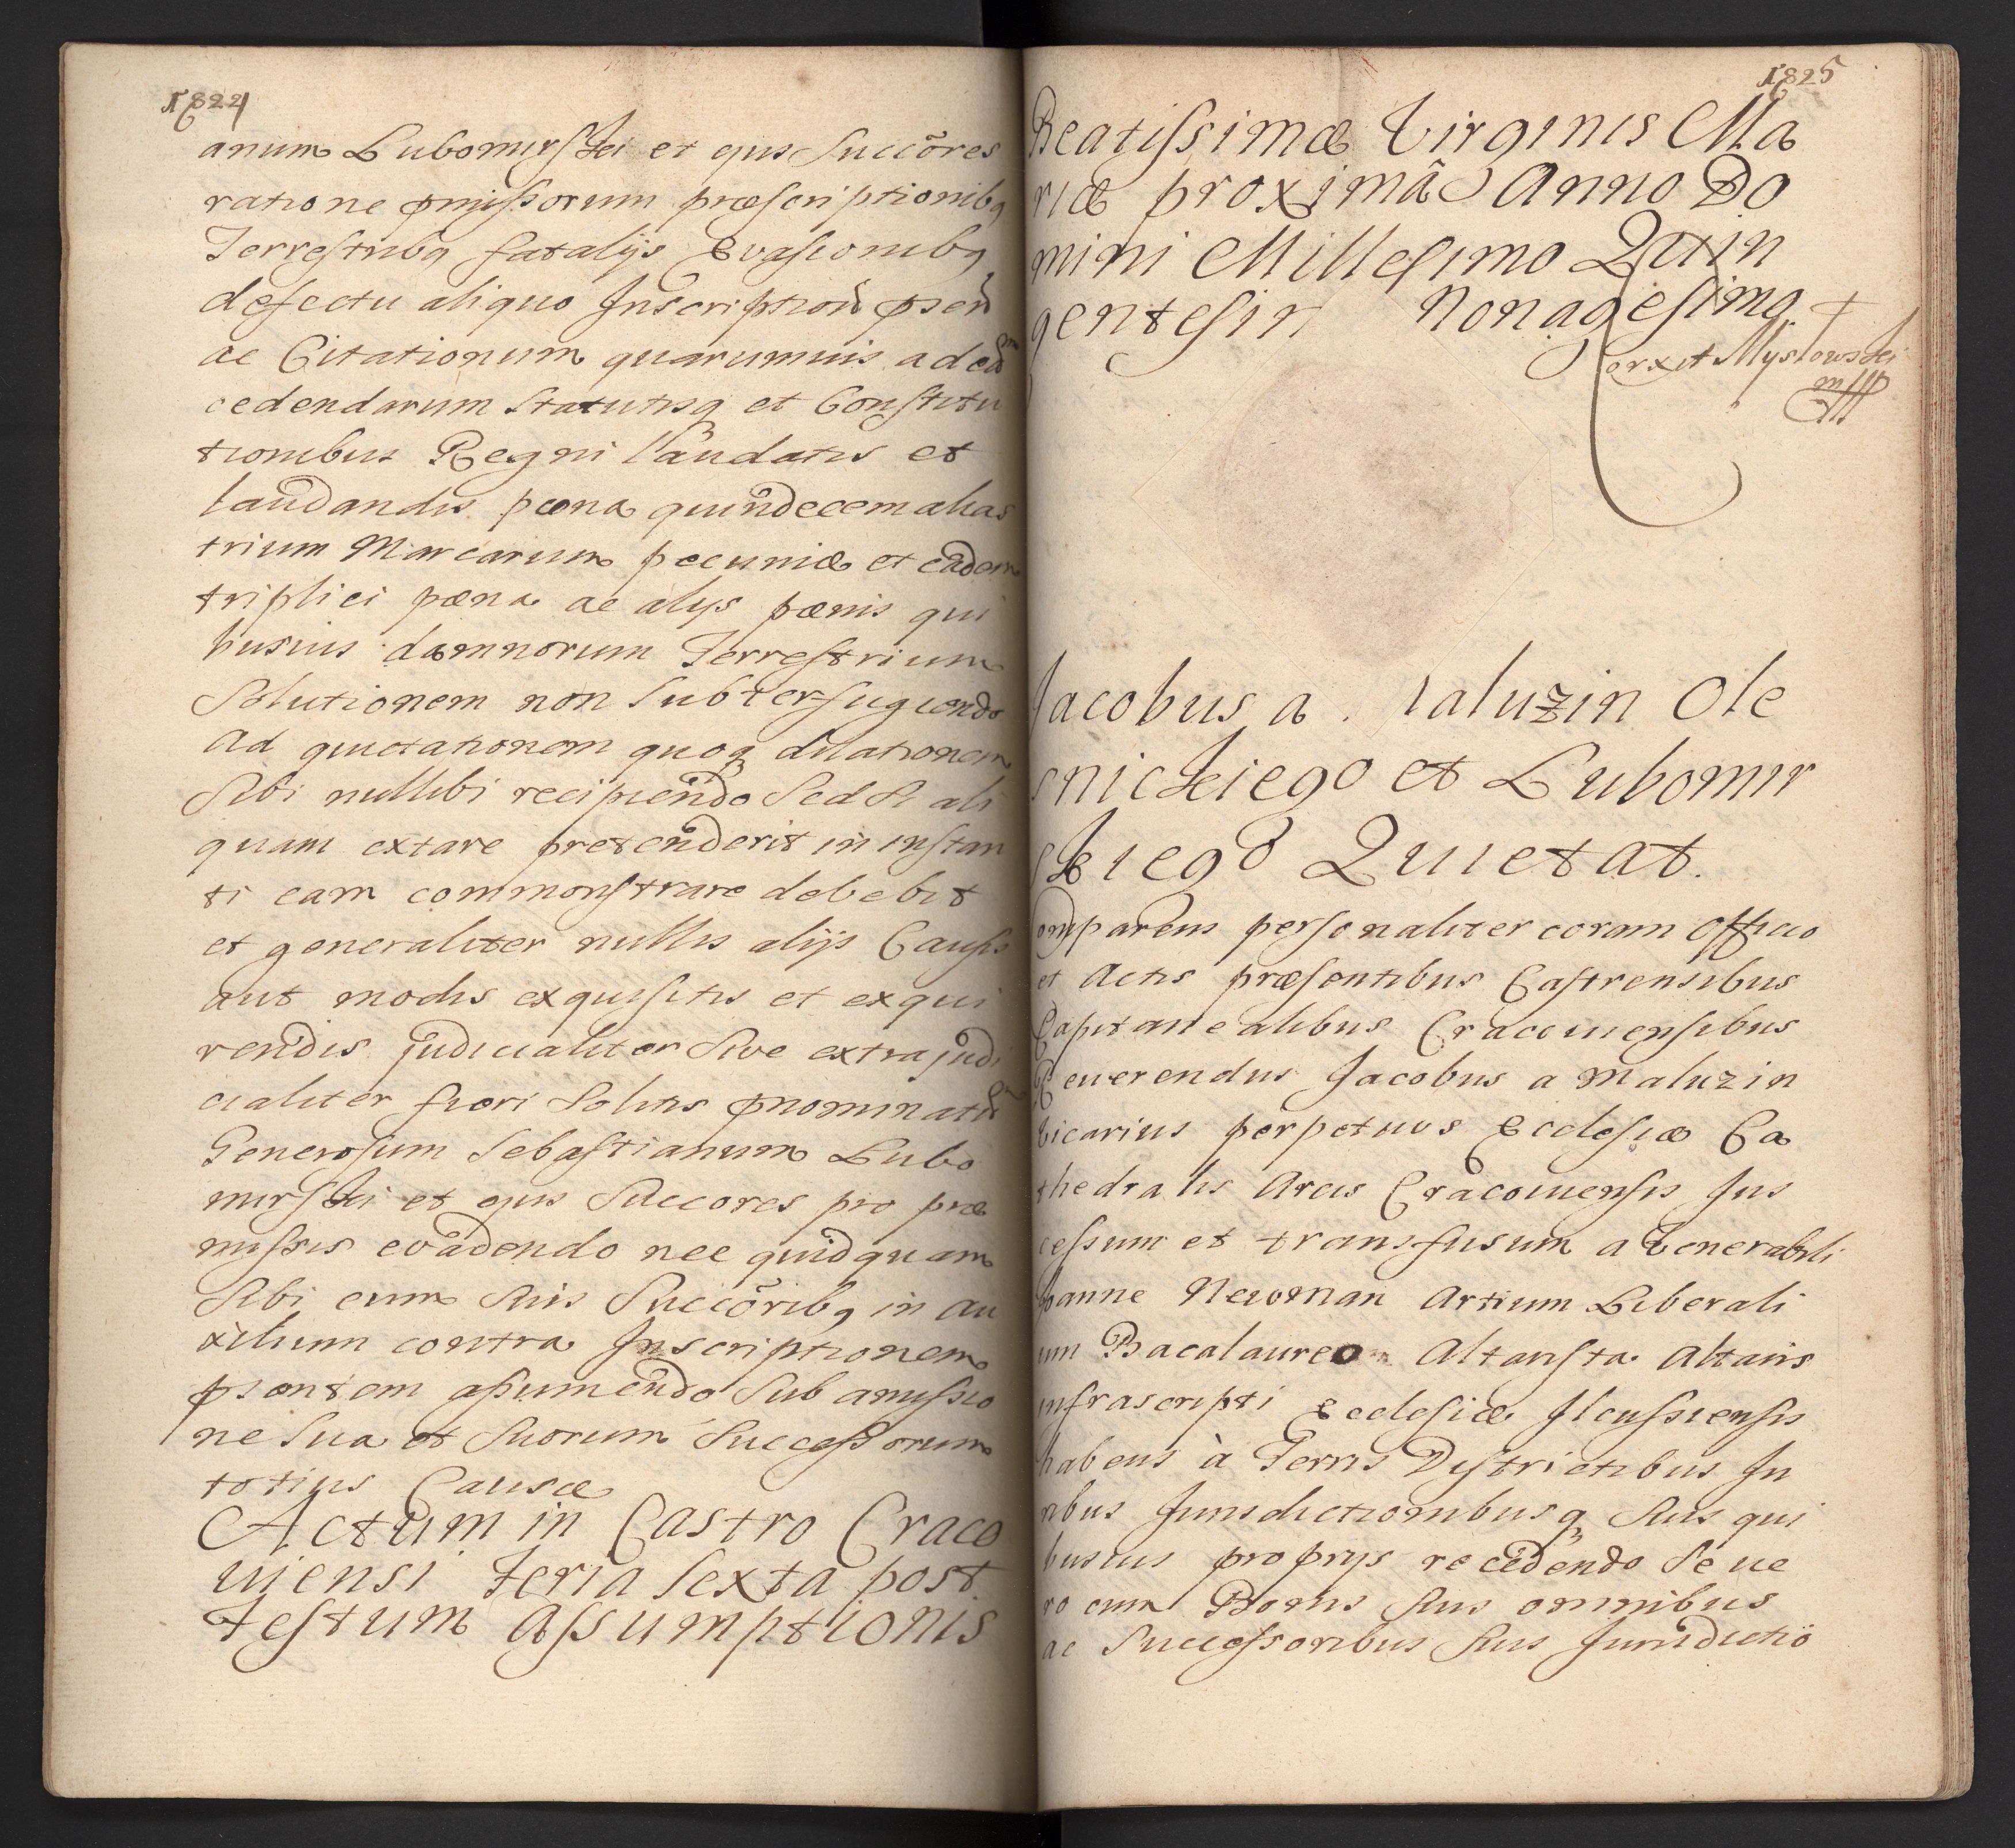 1824
anum Lubomirski et ejus Succõres
ratione pmissorum præscriptionibq
Terrestribq fatalijs Evasionibq
defectu aliquo Inscription psen
ac Citationum quarumuis ad ea
cedendarum Statutisq et Constitu
tionibus Regni laudatis et
laudandis pœna quindecem alias
trium Marcarum pecuniæ et eadem
triplici pœna ac alijs pœnis qui
busuis damnorum Terrestrium
Solutionem non Subterfugiendo
Ad quietationem quoq dilationem
Sibi nullibi recipiendo Sed Si ali
quam extare pretenderit in instan
ti eam commonstrare debebit
et generaliter nullis alijs Causis
aut modis exquisitis et exqui
rendis judicialiter Sive extrajudi
cialiter fieri Solitis pnominatu
Generosum Sebastianum Lubo
mirski et ejus Succores pro præ
missis evadendo nec quidquam
Sibi cum Suis Succõribq in au
xilium contra Inscriptionem
psentem assumendo Sub amissio
ne Sua et Suorum Successorum
totius Causæ
Actum in Castro Craco
uiensi Feria Sexta post
Festum Assumptionis
1825
Beatissimæ Virginis Ma
riæ proximâ Anno Do
mini Millesimo Quin
gentesim Nonagesimo
Porxit Myslowski
mp
Jacobus a . aluzin Ole
snickiego et Lubomir
skiego Quietat.
omparens personaliter coram Officio
et Actis præsentibus Castrensibus
Capitanealibus Cracouiensibus
Reuerendus Jacobus a Maluzin
Vicarius perpetuus Ecclesiæ Ca
thedralis Arcis Cracouiensis Jus
cessum et transfusum a Venerabili
Joanne Newman Artium Liberali
um Bacalaureo Altarista Altaris
infrascripti Ecclesiæ Ilcussiensis
habens à Terris Districtibus Ju
ribus Jurisdictionibusq Suis qui
busuis proprijs recedendo Se ue
ro cum Bonis Suis omnibus
ac Successoribus Suis Jurisdictio